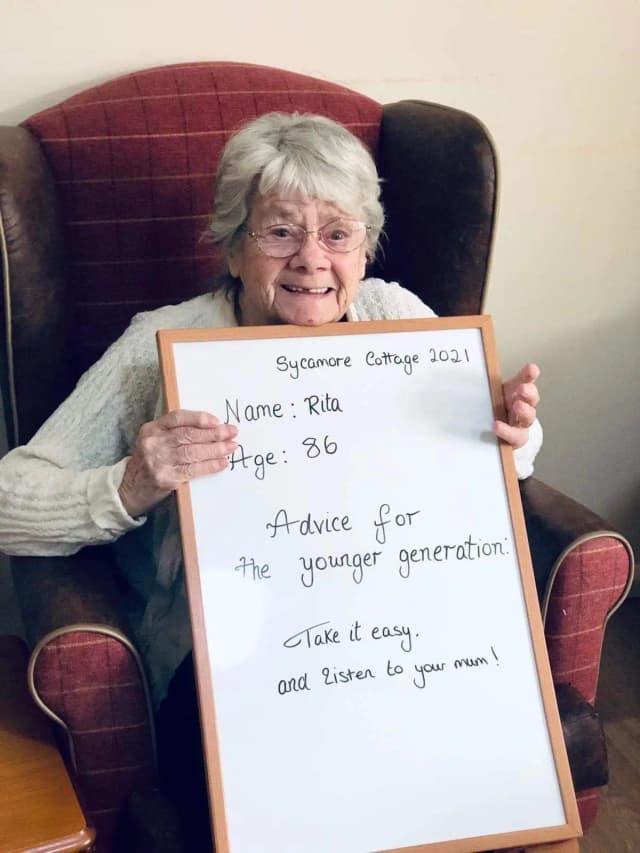 Sycamore Cottage 2021
Name : Rita
Age : 86
Advice for
the younger generation:
Take it easy.
and listen to your mum!